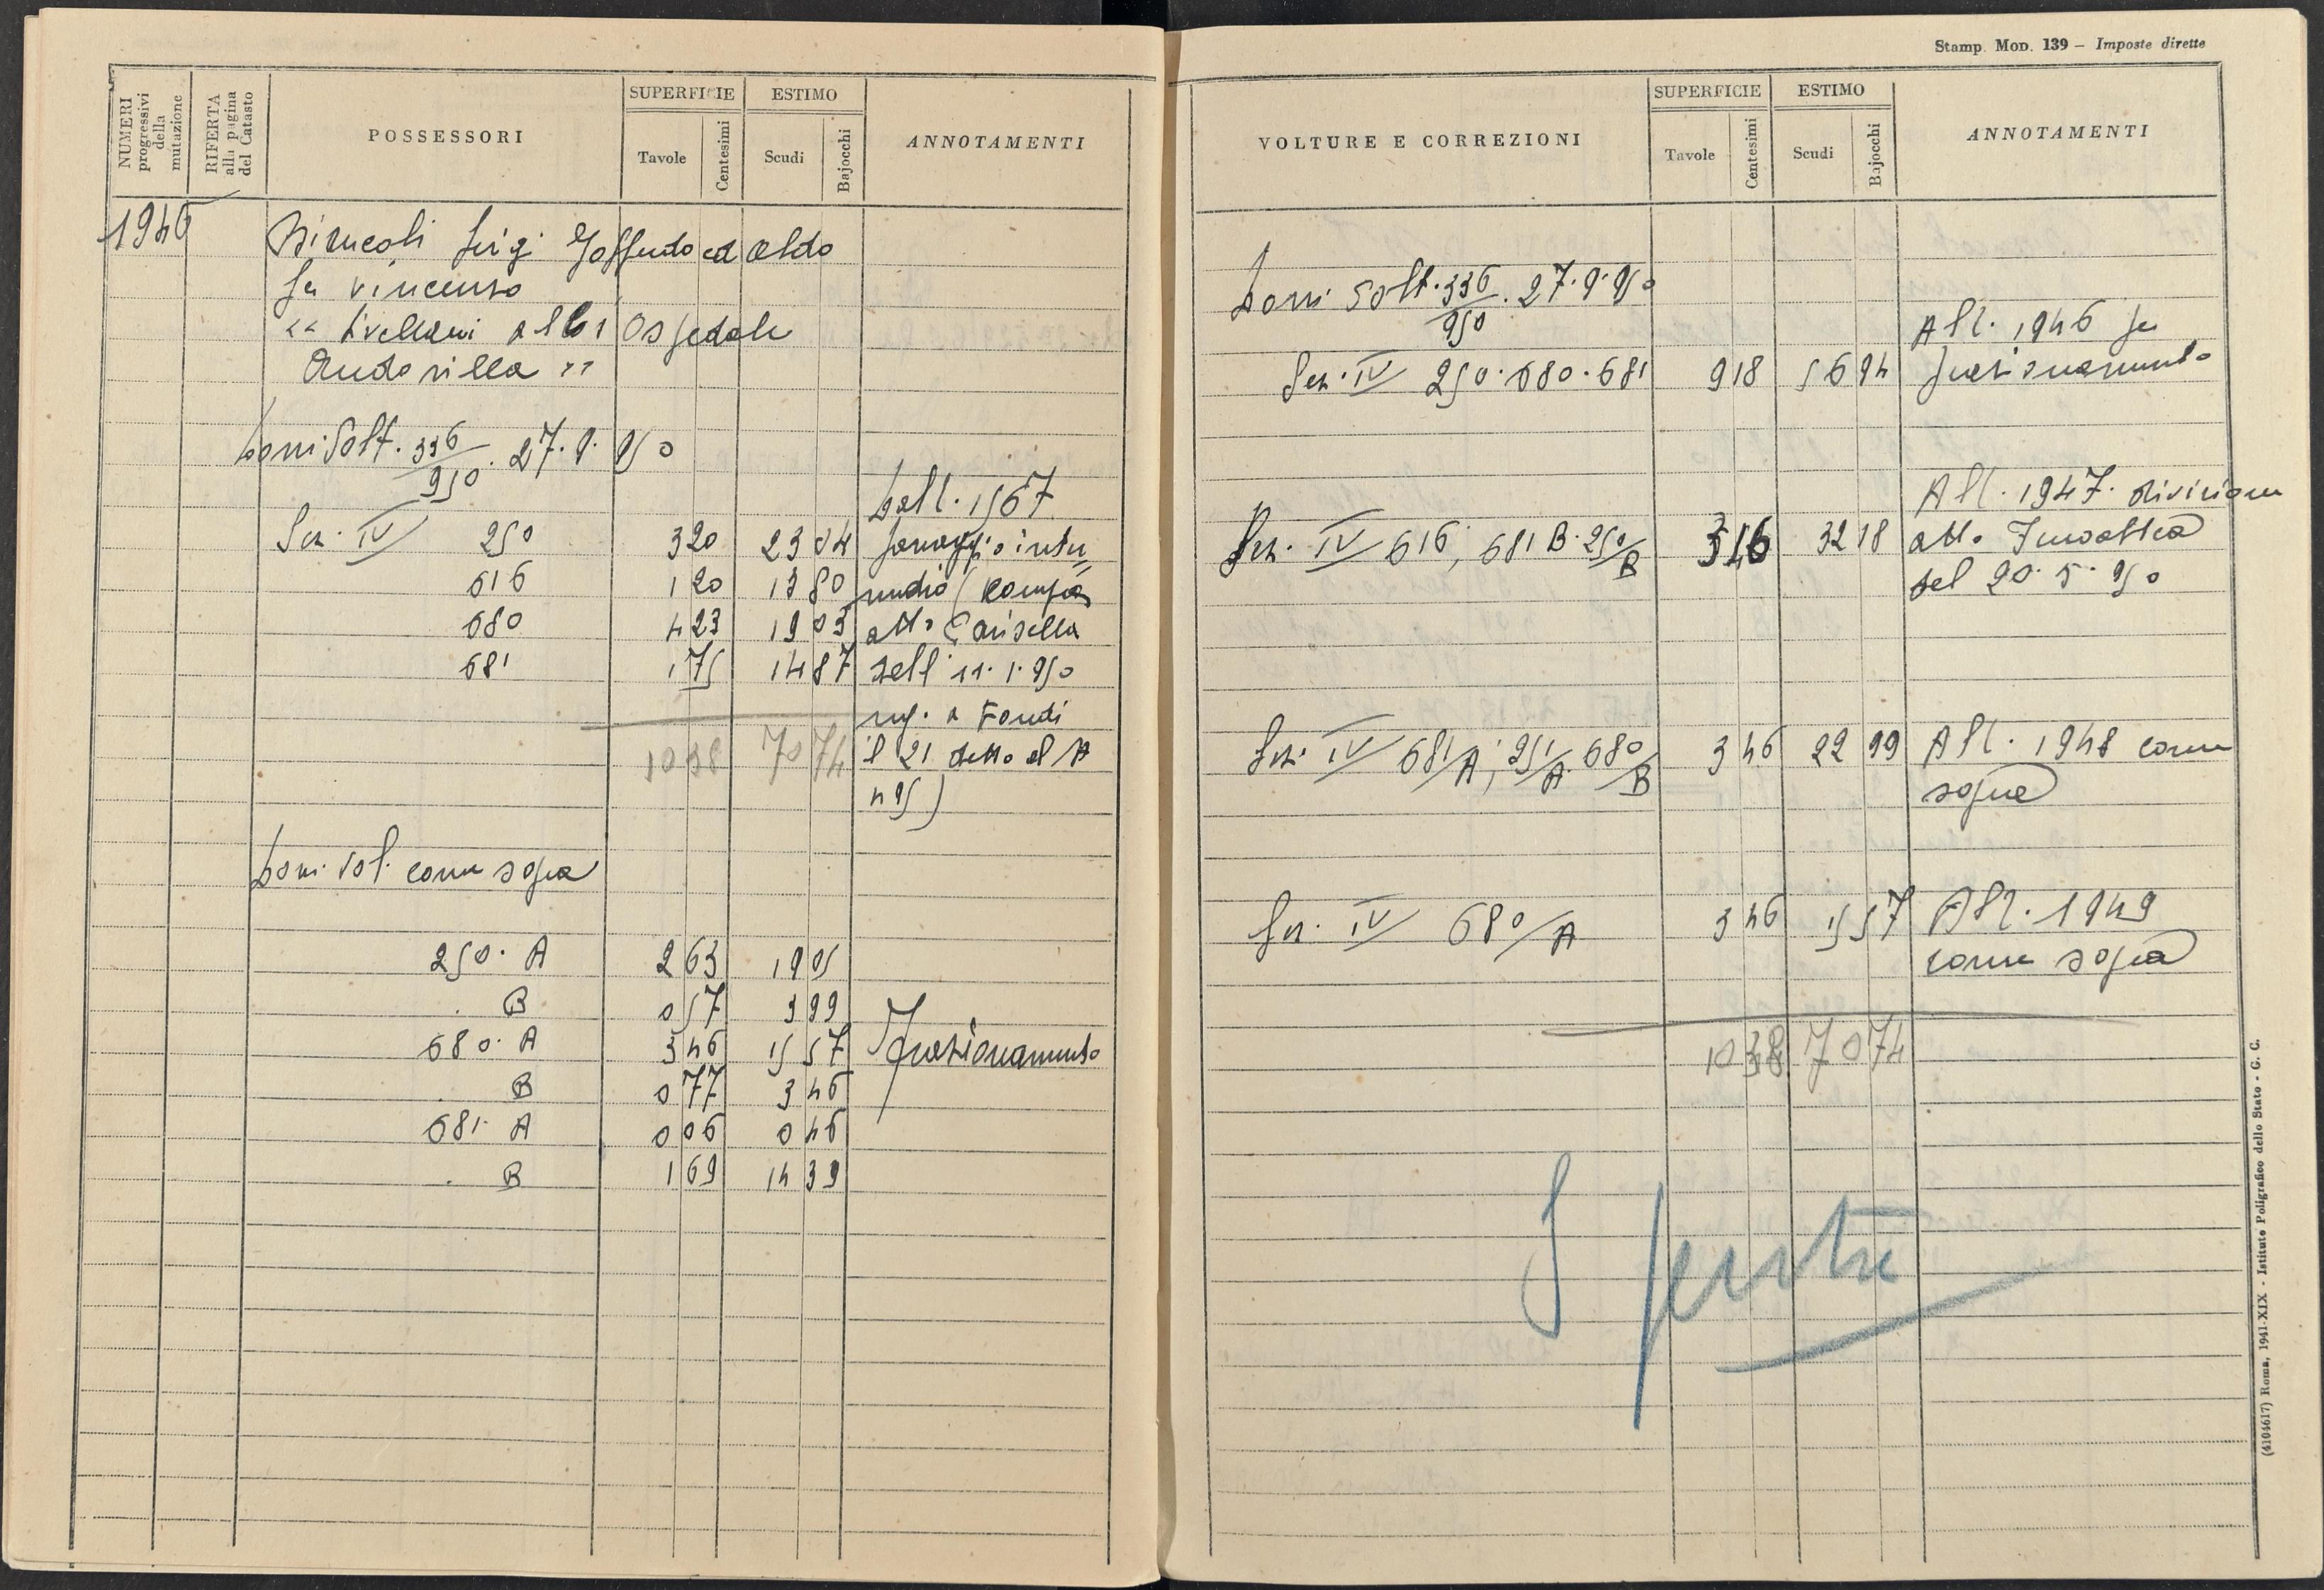 NUMERI progressivi della mutazione
RIFERTA alla pagina del Catasto
POSSESSORI
SUPERFICIE
Tavole
Centesimi
ESTIMO
Scudi
Bajocchi
ANNOTAMENTI
1946
Luigi Goffredo ed Aldo
fu Vincenzo
“ Livellari all' Ospedale
”
Volt. 336/950. 27.9.950
Sez. IV 250 3 20 23 04
616 1 20 13 80
680 4 23 19 03
681 1 75 14 87
10 38 70 74
Dall. 1567
passaggio inter=
medio (Compra
atto Parisella
dell 11.1.950
reg. a Fondi
il 21 detto al N
495)
Vol. come sopra
250. A 2 63 19 05
. B 0 57 3 99
680. A 3 46 15 57
. B 0 77 3 46
681. A 0 06 0 46
. B 1 69 14 39
Frazionamento
Stamp. Mod. 139 – Imposte dirette
VOLTURE E CORREZIONI
SUPERFICIE
Tavole
Centesimi
ESTIMO
Scudi
Bajocchi
ANNOTAMENTI
Volt. 336/950. 27.9.950
Sez. IV 250. 680. 681 9 18 56 94
All. 1946 per
frazionamento
Sez. IV 616, 681 B. 250/B 3 46 32 18
All. 1947. divisione
atto
del 20.5.950
Sez. IV 681/A, 251/A 680/B 3 46 22 99
All. 1948 come
sopra
Sez. IV 680/A 3 46 15 57
All. 1949
come sopra
10 38 70 74
Spente
(4104617) Roma, 1941-XIX - Istituto Poligrafico dello Stato - G. C.